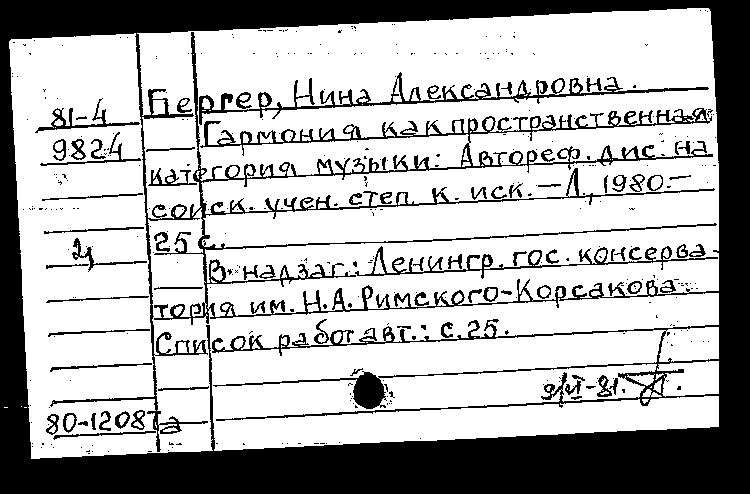 81-4
9824
Бергер, Нина Александровна.
Гармония как пространственная
категория музыки: Автореф. дис. на
соиск. учен. степ. к. иск. — Л., 1980. —
25 с.
В надзаг.: Ленингр. гос. консерва-
тория им. Н.А. Римского-Корсакова.
Список работ авт.: с. 25.
9/VI-81.
80-12087а